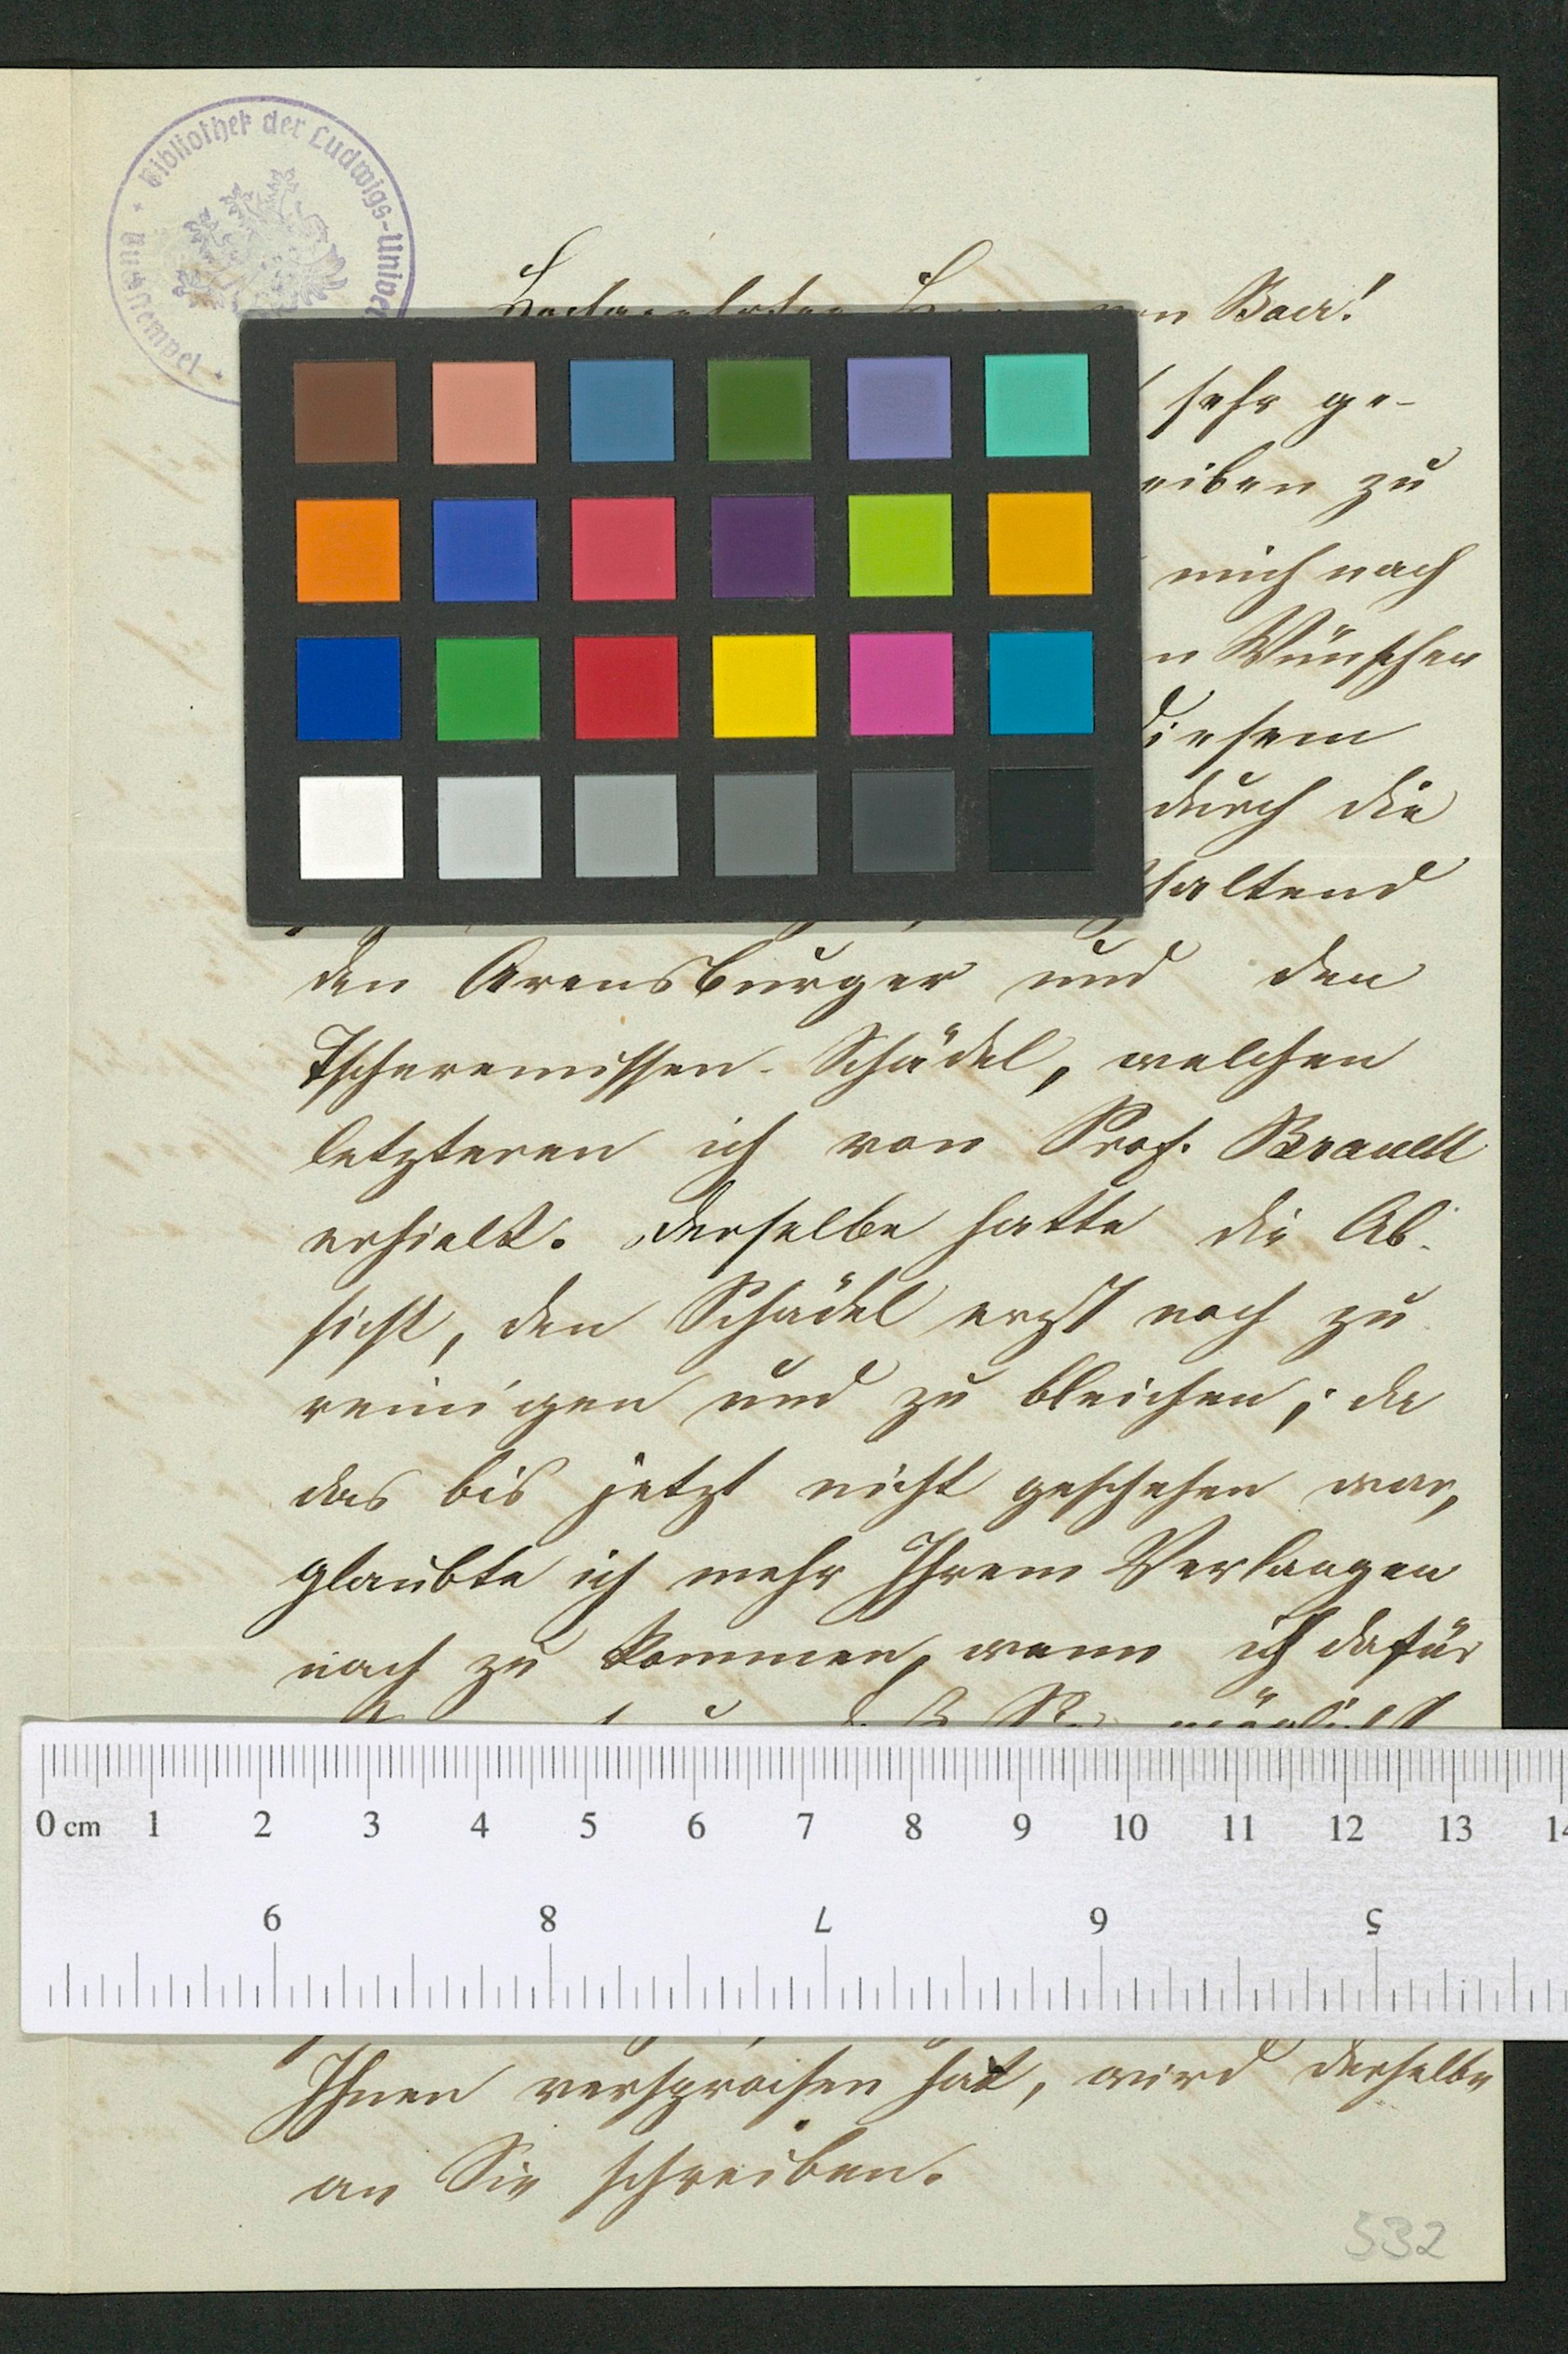 Bibliothek der Ludwigs-Univer
Hochgeehrter Herr von Baer!
sehr ge-
eiben zu
mich nach
n Wünschen
diesem
durch die
haltend
den Arensburger und den
Tscheremissen-Schädel, welchen
letzteren ich von Prof. Brandt
erhielt. Derselbe hatte die Ab-
sicht, den Schädel erst noch zu
reinigen und zu bleichen; da
das bis jetzt nicht geschehen war,
glaubte ich mehr Ihrem Verlangen
nach zu kommen, wenn ich dafür
möglichst
0 cm 1 2 3 4 5 6 7 8 9 10 11 12 13 14
9 8 7 6 5
Ihnen versprochen hat, wird derselbe
an Sie schreiben.
532